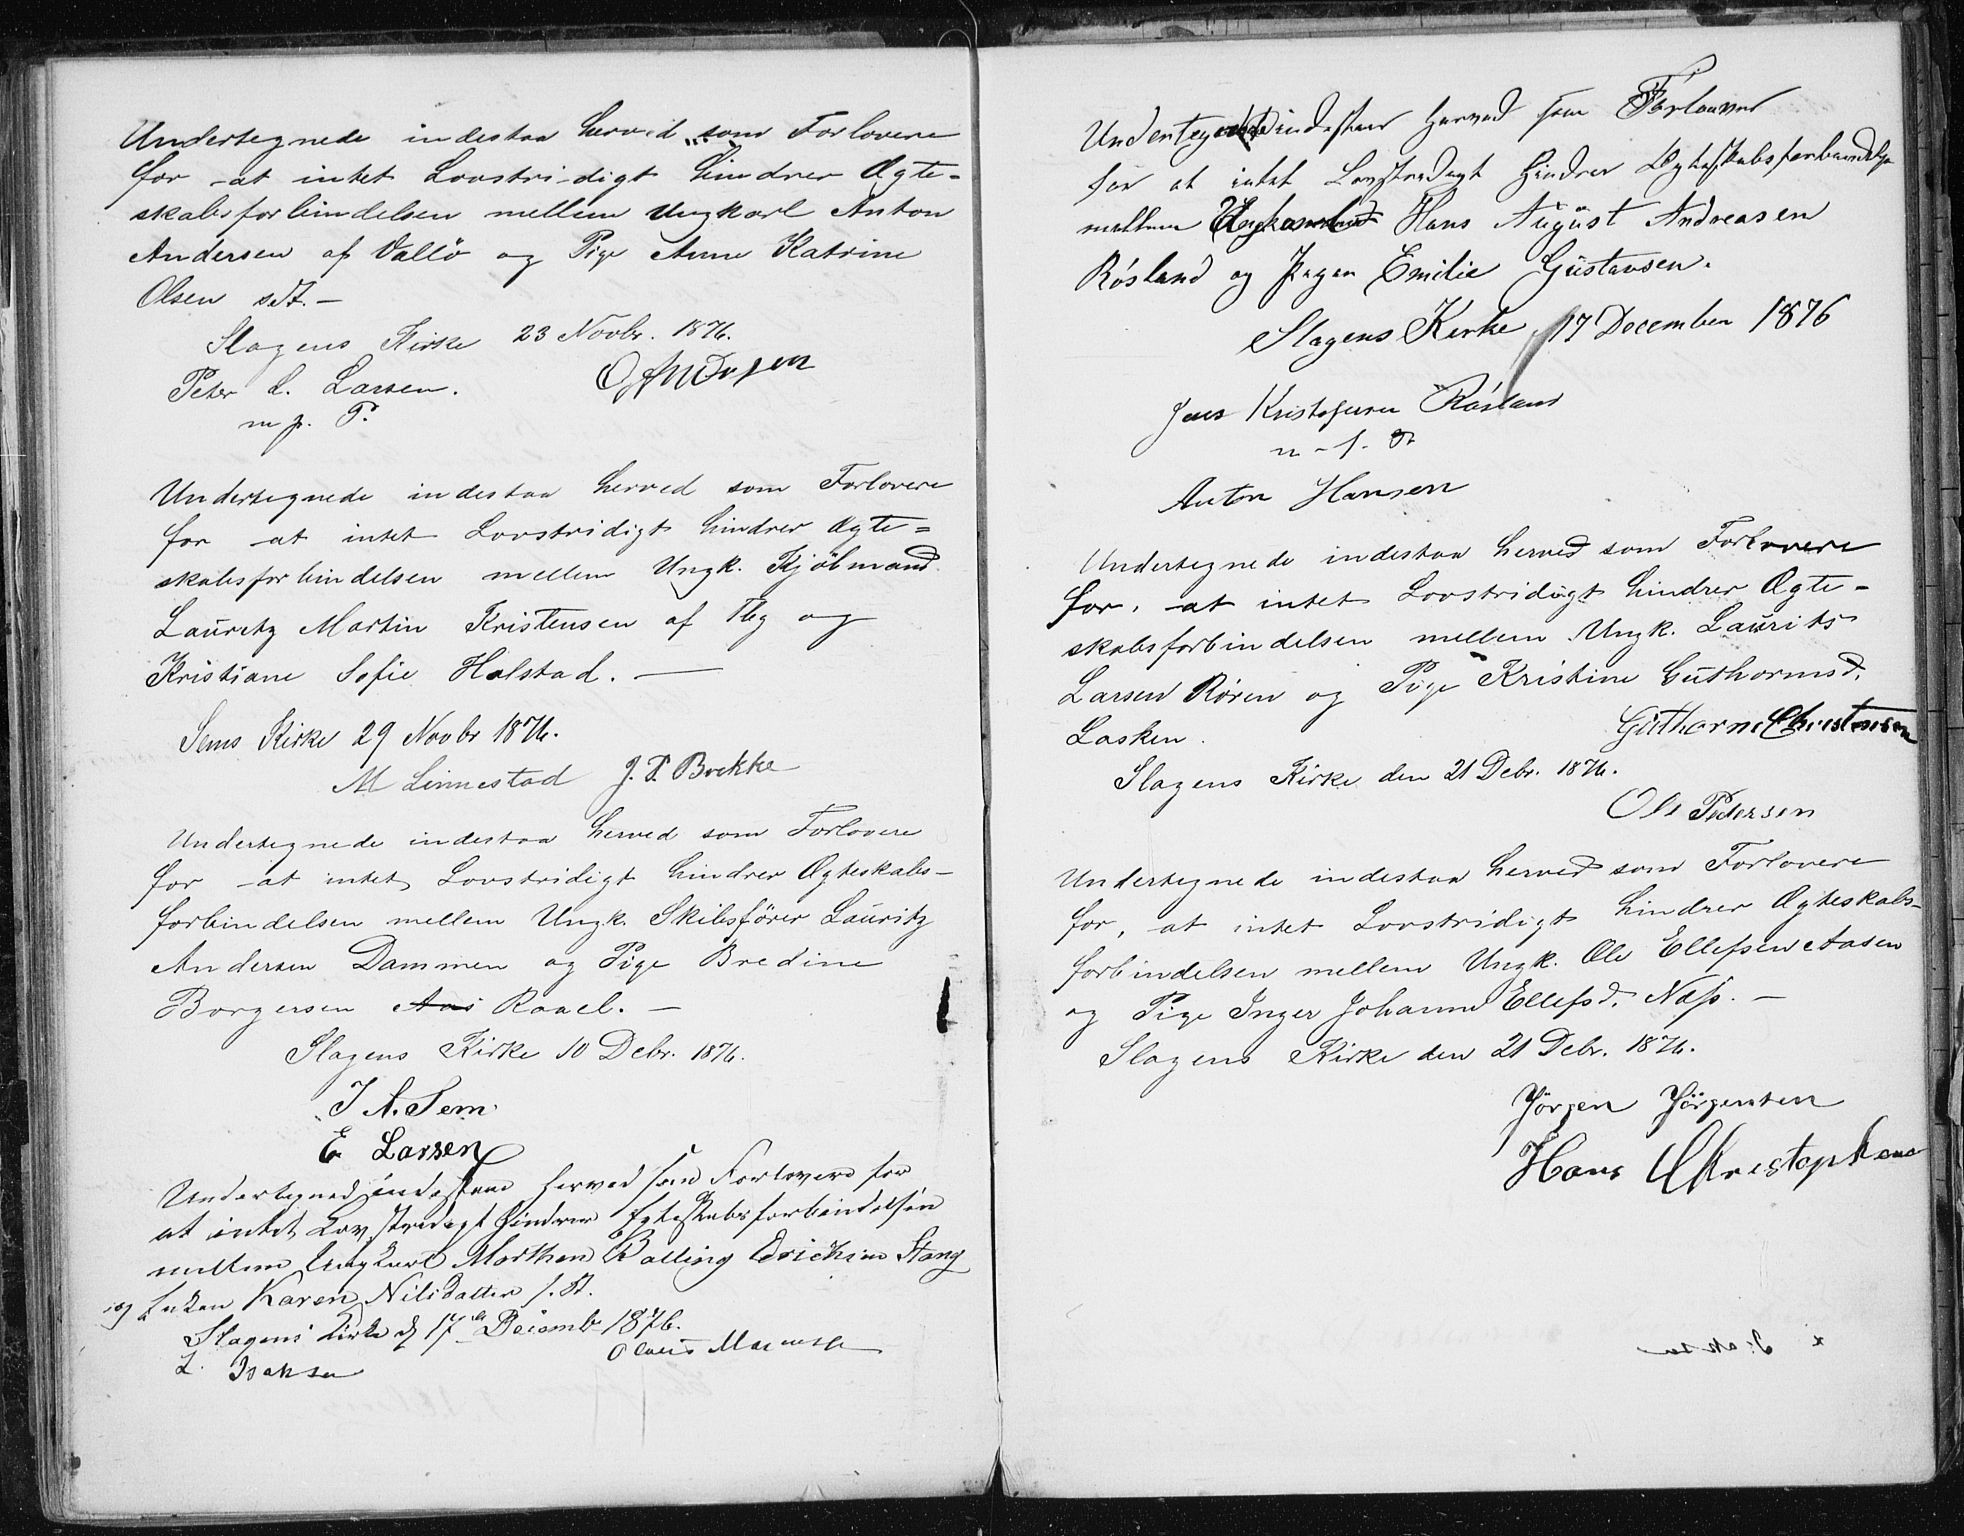 Undertegnede indestaa herved som Forlovere
for at intet Lovstridigt hindrer Ægte-
skabsforbindelsen mellem Ungkarl Anton
Andersen af Vallö og Pige Anne Katrine
Olsen sdt. -
Slagens Kirke 23 Novbr. 1876.
Peter L. Larsen.
m. p. P.
Undertegnede indestaa herved som Forlovere
for at intet Lovstridigt hindrer Ægte=
skabsforbindelsen mellem Ungk. Kjöbmand
Lauritz Martin Kristensen af Tbg og
Kristiane Sofie Holstad. -
Sems Kirke 29 Novbr 1876.
M Linnestad J. P. Brekke
Undertegnede indestaa herved som Forlovere
for at intet Lovstridigt hindrer Ægteskabs-
forbindelsen mellem Ungk. Skibsförer Lauritz
Andersen Dammen og Pige Bredine
Borgersen Aas Raael. -
Slagens Kirke 10 Debr. 1876.
J A. Sem
E Larsen
Undertegned indestaae herved som Forlovere for
at intet Lovstridigt hindrer Egteskabsforbindelsen
mellem Ungkarl Morthen Balling Erichsen Stang
og Enken Karen Nilsdatter s. St.
Slagens Kirke d 17de Decemb 1876.
L. Isaksen Olaus
Undertegnede indestaar herved som Forlovere
for at intet Lovstridigt hindrer Ægteskabsforbindelse
mellem Ungkarl Hans August Andreasen
Rósland og Pigen Emilie Gustavsen.
Slagens Kirke 17 December 1876
Jens Kristofersen Rósland
Anton Hansen
Undertegnede indestaa herved som Forlovere
for, at intet Lovstridigt hindrer Ægte-
skabsforbindelsen mellem Ungk. Laurits
Larsen Rören og Pige Kristine Guthormsd.
Lasken. Guthorm Christensen
Slagens Kirke den 21 Debr. 1876.
Ole Petersen
Undertegnede indestaa herved som Forlovere
for, at intet Lovstridigt hindrer Ægteskabs-
forbindelsen mellem Ungk. Ole Ellefsen Aasen
og Pige Inger Johanne Ellefsd. Næss. -
Slagens Kirke den 21 Debr. 1876.
Jörgen Jörgensen
Hans Christophersen